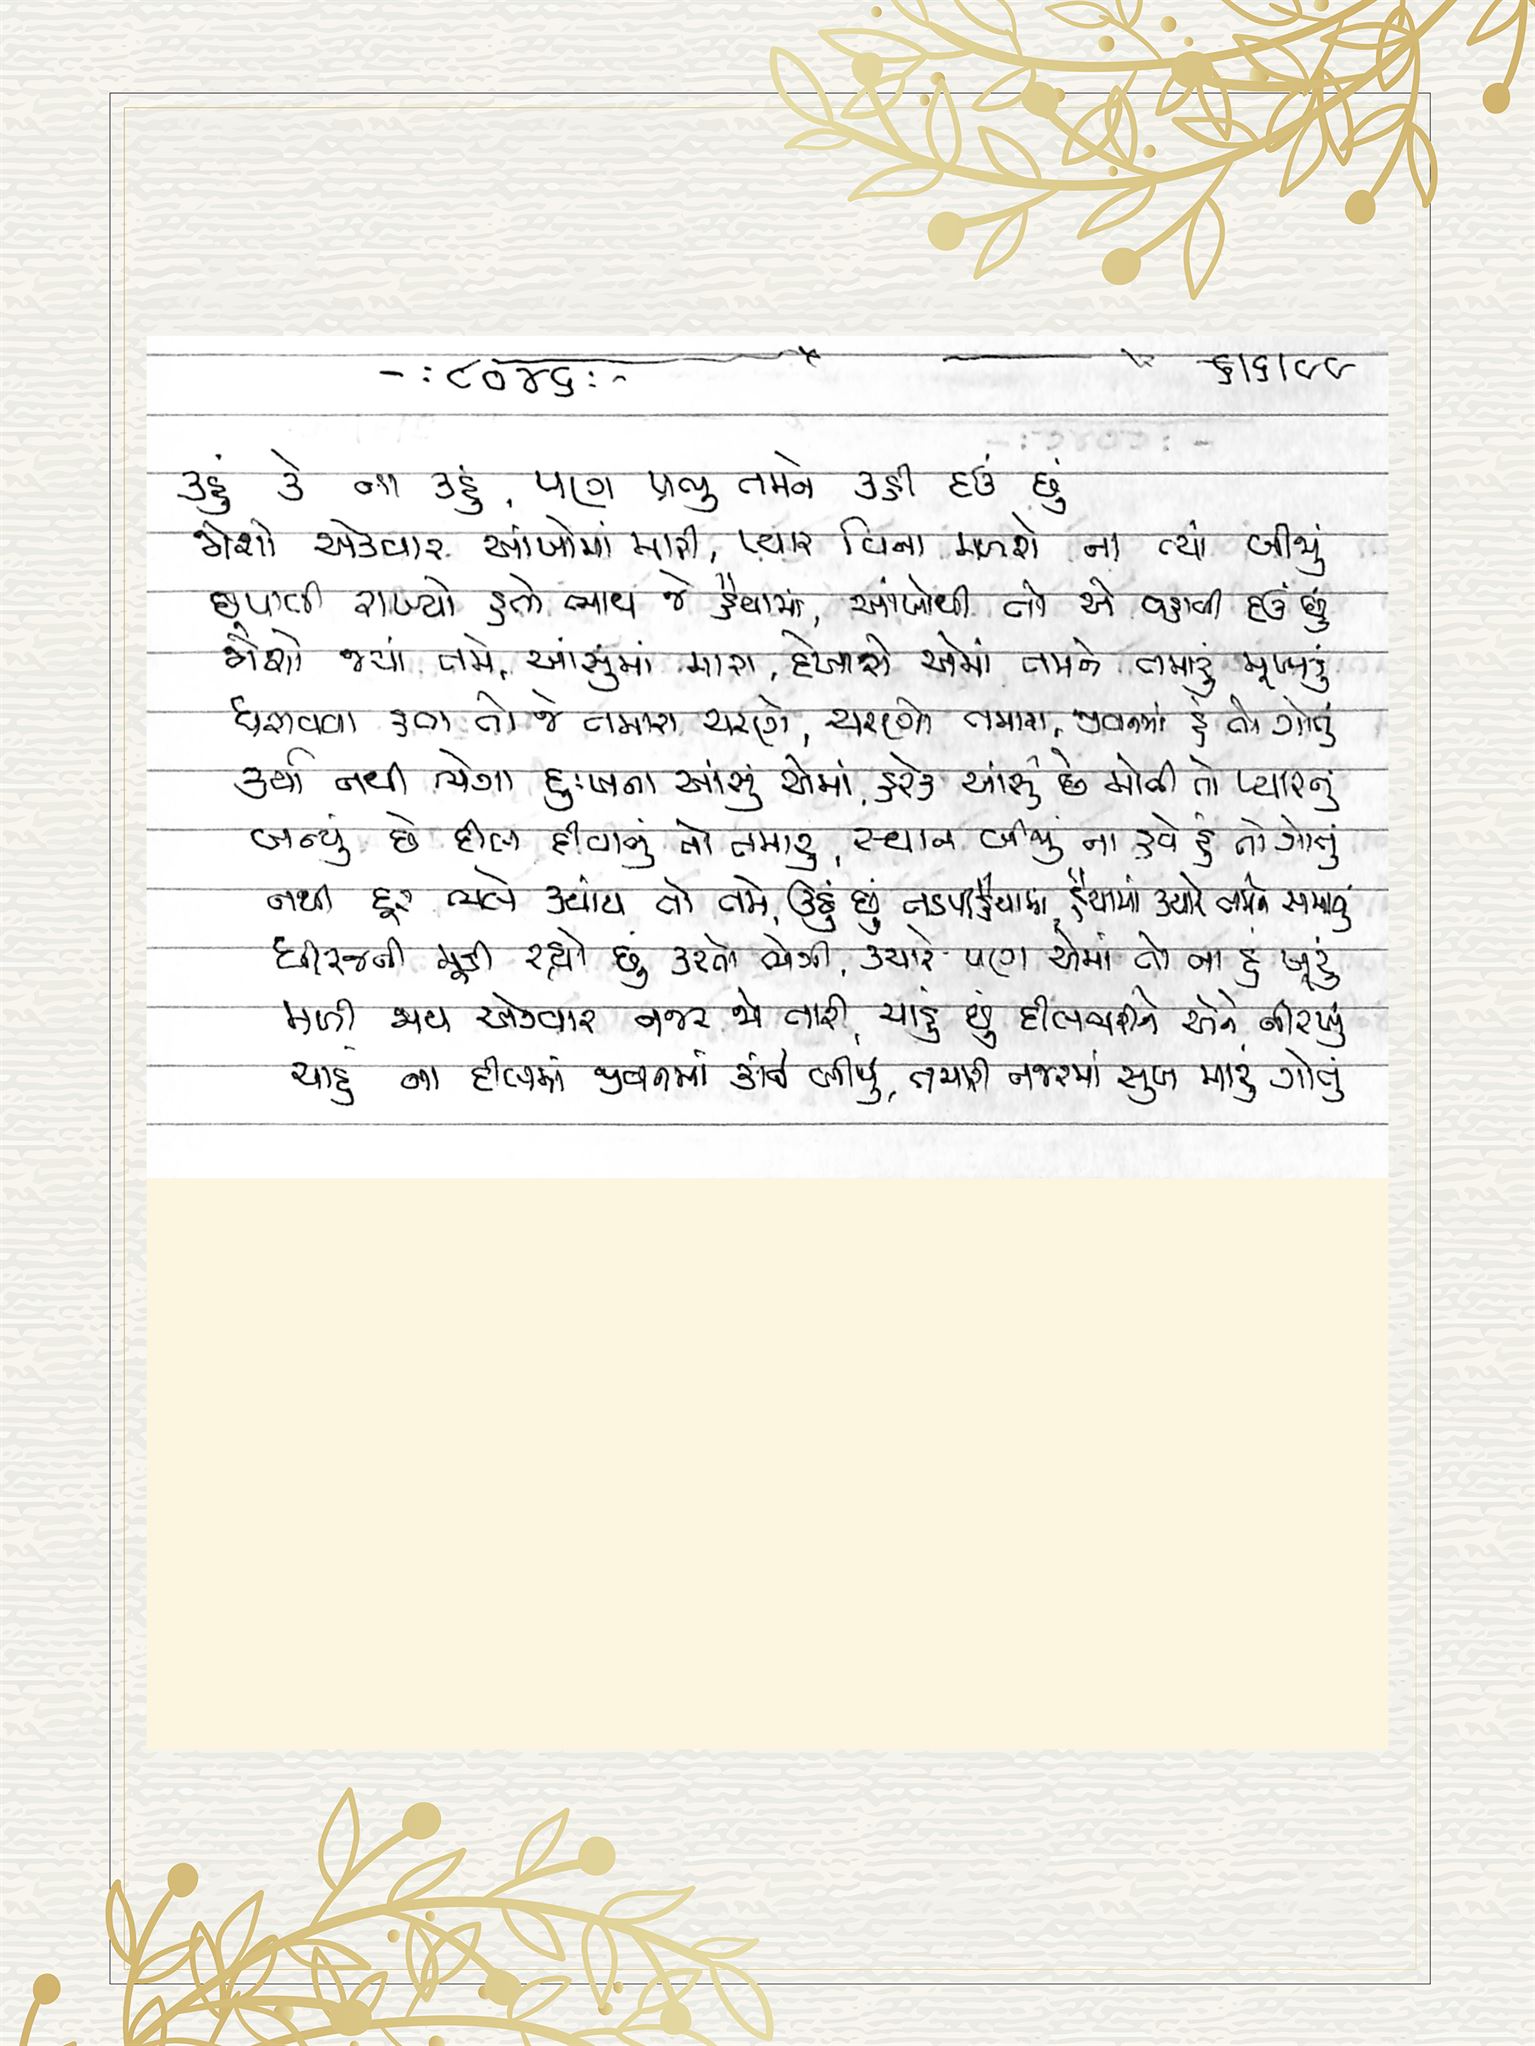 -: ૮૦૪૬ :- ૬।૬।૯૯
કહું કે ના કહું, પણ પ્રભુ તમને કહી દઉં છું
જોશો એકવાર આંખોમાં મારી, પ્યાર વિના મળશે ના ત્યાં બીજું
છુપાવી રાખ્યો હતો ભાવ જે હૈયામાં, આંખોથી તો એ વહાવી દઉં છું
જોશો જ્યાં તમે, આંસુંમાં મારા, દેખાશે એમાં તમને તમારું મુખડું
ધરાવવા હતા તો જે તમારા ચરણે, ચરણો તમારા, જીવનમાં હું તો ગોતું
કર્યા નથી ભેગા દુઃખના આંસું એમાં, હરેક આંસું છે મોતી તો પ્યારનું
બન્યું છે દીલ દીવાનું તો તમારું, સ્થાન બીજું ના હવે હું તો ગોતું
નથી દૂર ભલે ક્યાંય તો તમે, કહું છું તડપી હૈયામાં, હૈયામાં ક્યારે તમને સમાવું
ધીરજની મૂડી રહ્યો છું કરતો ભેગી, ક્યારે પણ એમાં તો ના હું ખૂટું
મળી જાય એકવાર નજર જો તારી, ચાહું છું દીલભરીને એને નીરખું
ચાહું ના દીલમાં જીવનમાં કાંઈ બીજું, તમારી નજરમાં સુખ મારું ગોતું